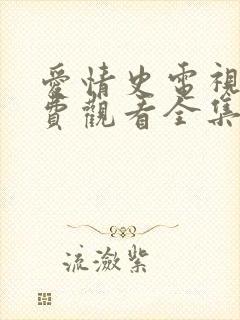 愛情史電視
費觀看全集
流瀲紫